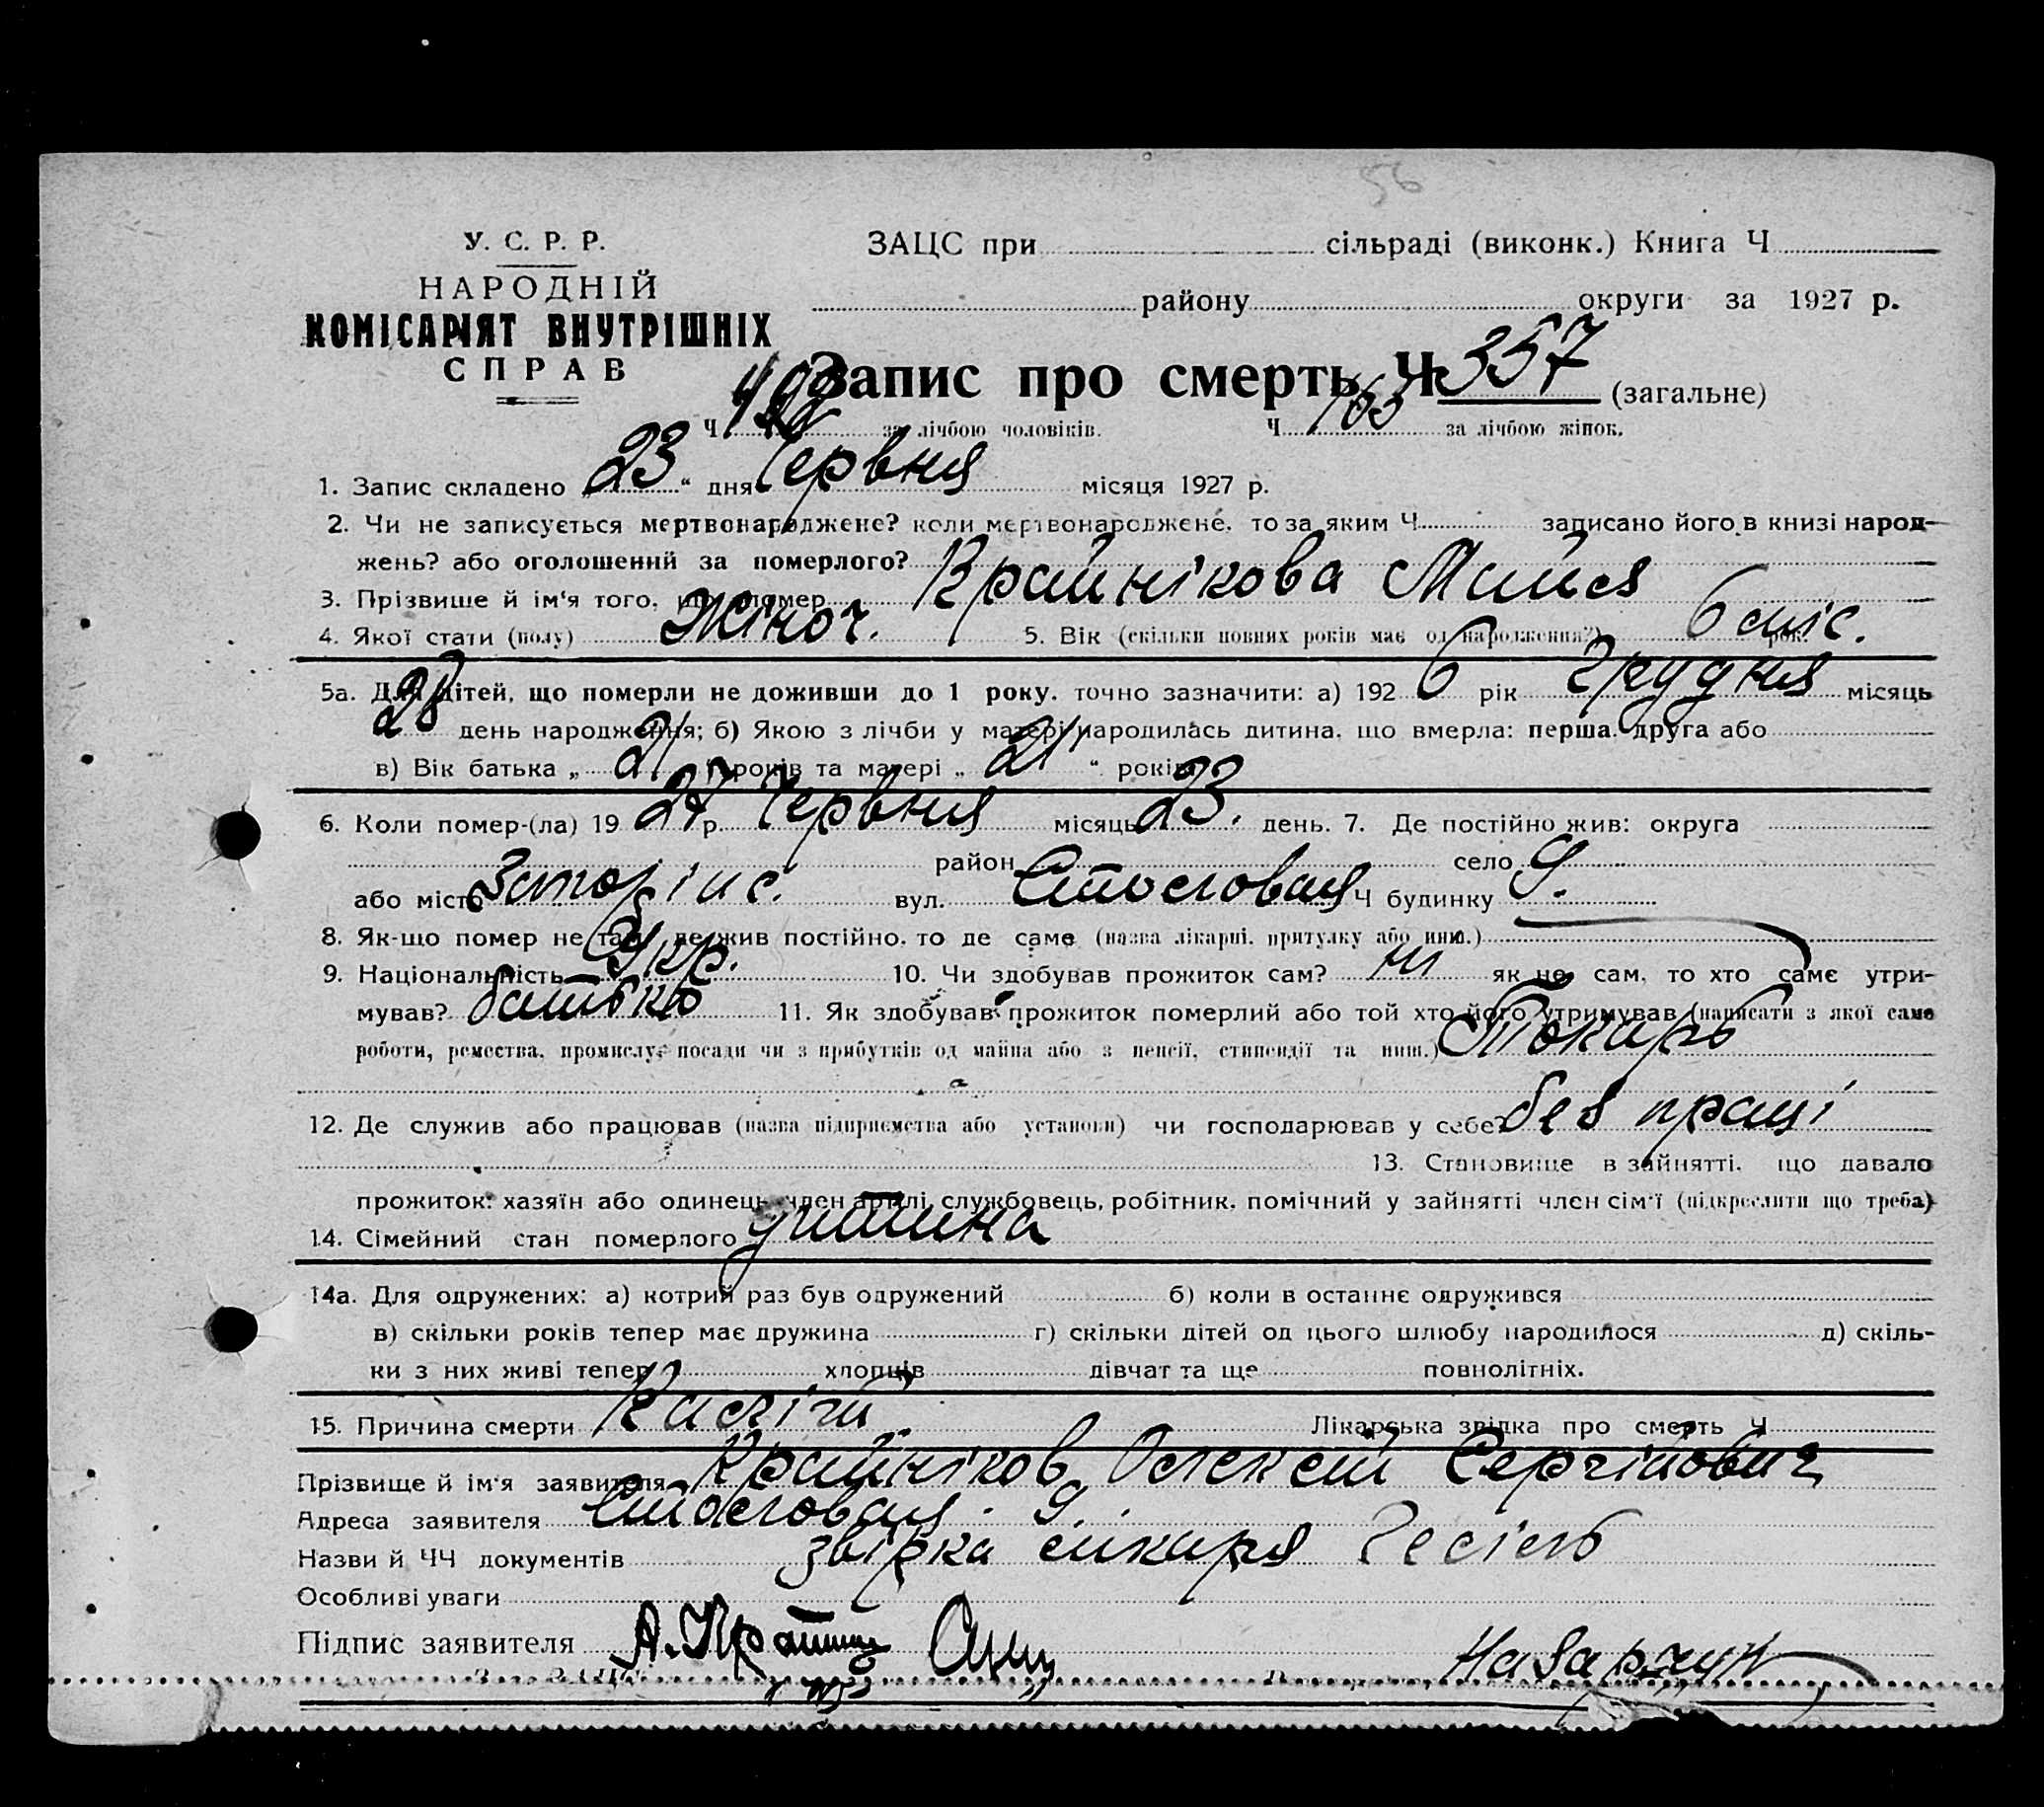 56
У. С. Р. Р.
НАРОДНІЙ
КОМІСАРІЯТ ВНУТРІШНІХ
СПРАВ
ЗАЦС при сільраді (виконк.) Книга Ч
району округи за 1927 р.
Запис про смерть Ч 357 (загальне)
Ч за лічбою чоловіків. Ч 163 за лічбою жінок.
1. Запис складено „23“ дня Червня місяця 1927 р.
2. Чи не записується мертвонароджене? коли мертвонароджене, то за яким Ч записано його в книзі народ-
жень? або оголошений за померлого?
3. Прізвише й ім'я того, що помер Крайнікова Майя
4. Якої стати (полу) Жіноч. 5. Вік (скільки повних років має од народження?) 6 міс. рок.
5а. Для дітей, що померли не доживши до 1 року, точно зазначити: а) 192 6 рік Грудня місяць
28 день народження; б) Якою з лічби у матері народилась дитина, що вмерла: перша, друга або
в) Вік батька „ 21 “ років та матері „ 21 “ років
6. Коли помер-(ла) 19 27 р. Червня місяць 23. день. 7. Де постійно жив: округа
район село
або місто Запоріж. вул. Стословая Ч будинку 9.
8. Як-що помер не там, де жив постійно, то де саме (назва лікарні, притулку або инш.)
9. Національність Укр. 10. Чи здобував прожиток сам? ні як не сам, то хто саме утри-
мував? батько 11. Як здобував прожиток померлий або той хто його утримував (написати з якої саме
роботи, ремества, промислу, посади чи з прибутків од майна або з пенсії, стипендії та инш.) Токарь
12. Де служив або працював (назва підприємства або установи) чи господарював у себе? без праці
13. Становище в зайнятті, що давало
прожиток: хазяїн або одинець, член артілі, службовець, робітник, помічний у зайнятті член сім'ї (підкреслити що треба)
14. Сімейний стан померлого дитина
14а. Для одружених: а) котрий раз був одружений б) коли в останнє одружився
в) скільки років тепер має дружина г) скільки дітей од цього шлюбу народилося д) скіль-
ки з них живі тепер хлопців дівчат та ще повнолітніх.
15. Причина смерти Лікарська звідка про смерть Ч
Прізвище й ім'я заявителя Крайніков Олексій Сергійович
Адреса заявителя Стословая 9.
Назви й ЧЧ документів звідка лікаря
Особливі уваги
Підпис заявителя А. Крайни
Назарчук